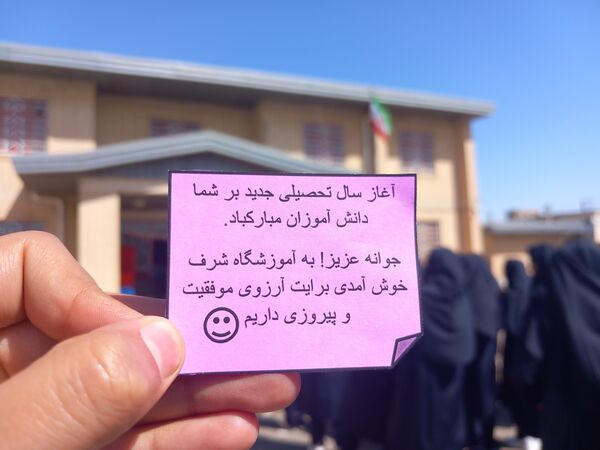 آغاز سال تحصیلی جدید بر شما
دانش آموزان مبارکباد.
جوانه عزیز! به آموزشگاه شرف
خوش آمدی برایت آرزوی موفقیت
و پیروزی داریم